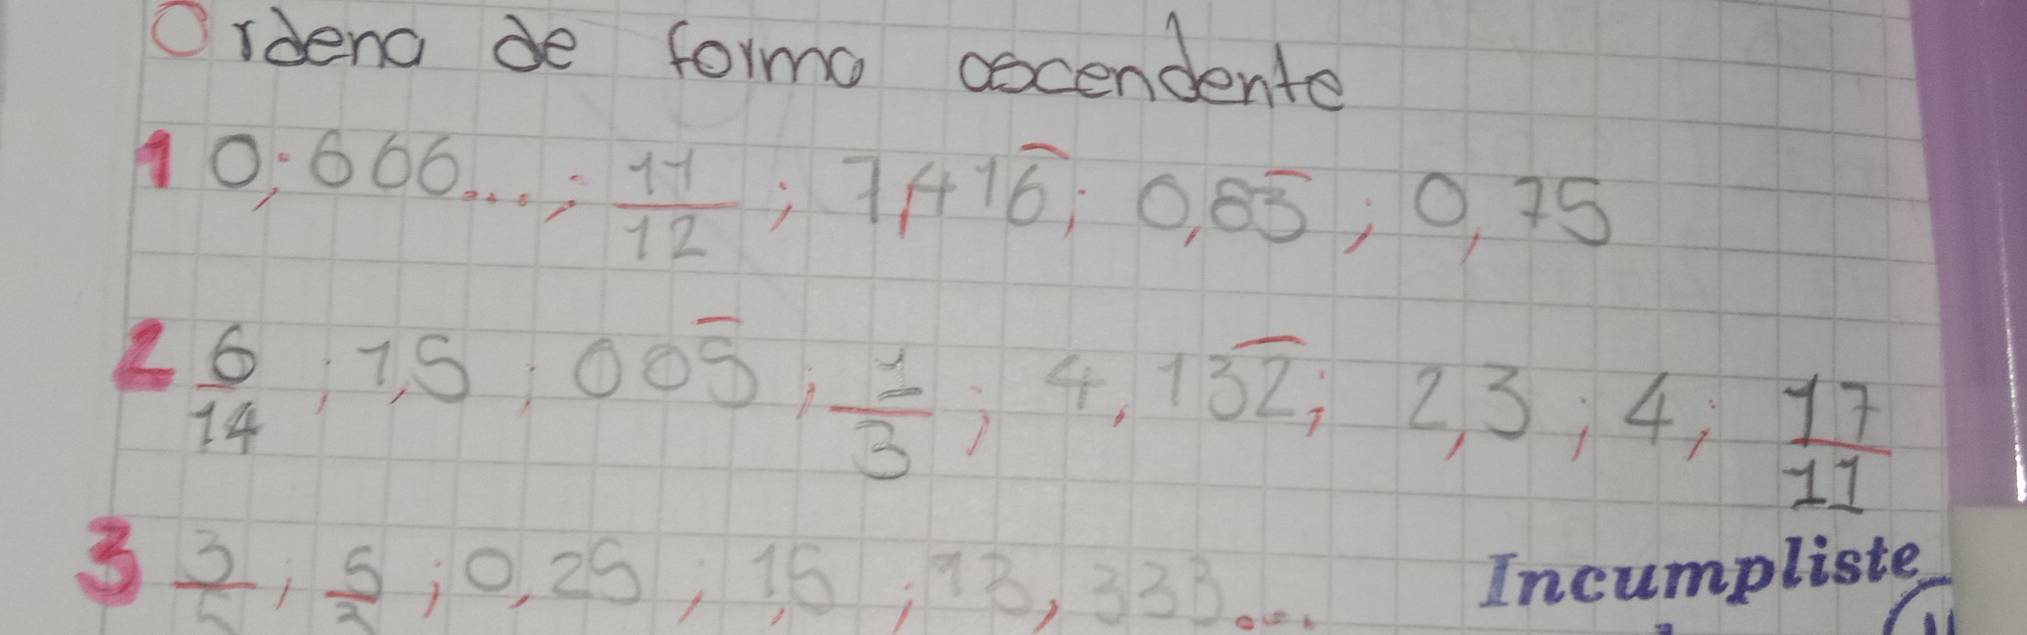 Ordena de forma ascendente
1 0,666...; 11/12; 1,416̅; 0,83̅; 0,75
2 6/14; 1,5; 005̅; 1/3; 4,13̅2̅; 2,3; 4; 17/11
3 3/5; 5/2; 0,25; 1,5; 13,333...
Incumpliste